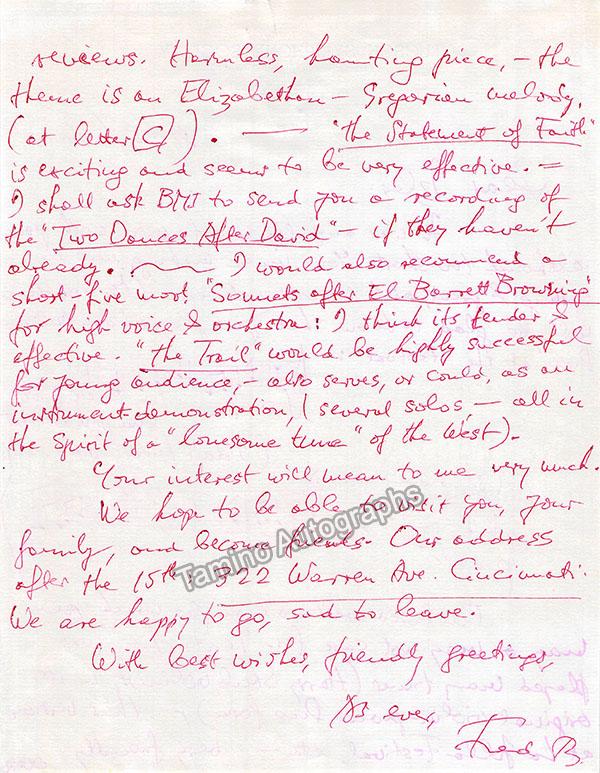 reviews. Harmless, haunting piece, – the
theme is an Elizabethan – Gregorian melody,
(at letter G). — "the Statement of Faith"
is exciting and seems to be very effective. =
I shall ask BMI to send you a recording of
the "Two Dances After David" – if they haven't
already. — I would also recommend a
short – five mov! "Sonnets after El. Barrett Browning"
for high voice & orchestra: I think its tender &
effective. "the Trail" would be highly successful
for young audience, – also serves, or could, as an
instrument-demonstration, (several solos, – all in
the spirit of a "lonesome tune" of the West).
Your interest will mean to me very much.
We hope to be able to visit you, your
family, and become friends. Our address
after the 15th: 322 Warren Ave. Cincinnati.
We are happy to go, sad to leave.
With best wishes, friendly greetings,
As ever,
Fred B.
Tamino Autographs